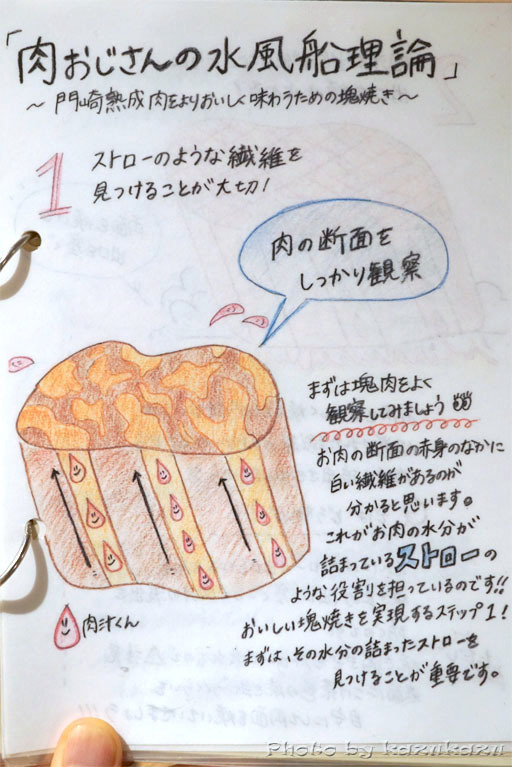 「肉おじさんの水風船理論」
～門崎熟成肉をよりおいしく味わうための塊焼き～
1 ストローのような繊維を
見つけることが大切!
肉の断面を
しっかり観察
まずは塊肉をよく
観察してみましょう
お肉の断面の赤身のなかに
白い繊維があるのが
分かると思います。
これがお肉の水分が
詰まっているストローの
ような役割を担っているのです!!
おいしい塊焼きを実現するステップ1!
まずは、その水分の詰まったストローを
見つけることが重要です。
肉汁くん
Photo by kazukazu